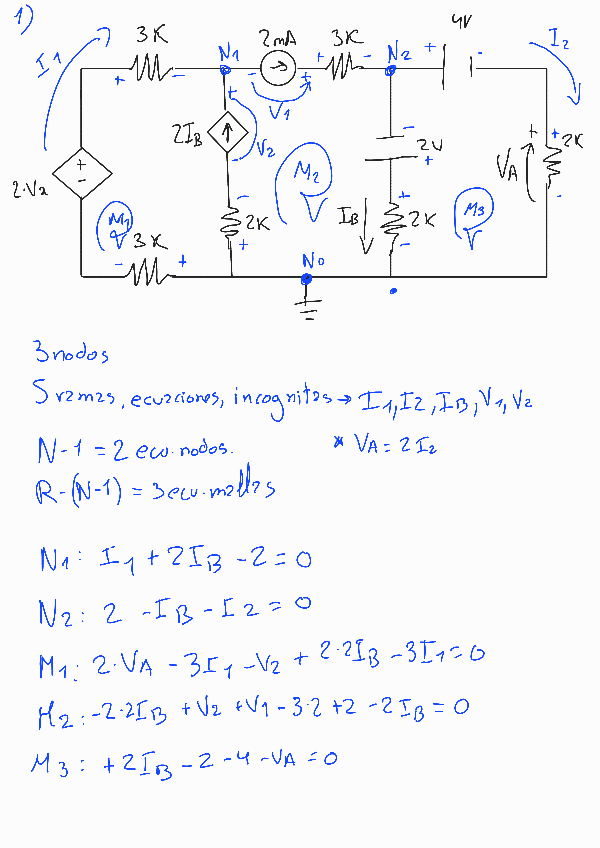 1)
3K
N1
2mA
3K
N2
4V
I2
I1
+
-
-
+
+
-
+
-
+
V1
2IB
V2
-
-
2V
+
+
VA
+
2K
-
+
-
2·V2
M1
M2
M3
-
2K
+
IB
+
2K
-
-
3K
+
N0
3 nodos
5 ramas, ecuaciones, incognitas → I1, I2, IB, V1, V2
N-1 = 2 ecu. nodos.
* VA = 2 I2
R-(N-1) = 3 ecu. mallas
N1: I1 + 2IB - 2 = 0
N2: 2 - IB - I2 = 0
M1: 2·VA - 3I1 - V2 + 2·2IB - 3I1 = 0
M2: -2·2IB + V2 + V1 - 3·2 + 2 - 2IB = 0
M3: +2IB - 2 - 4 - VA = 0